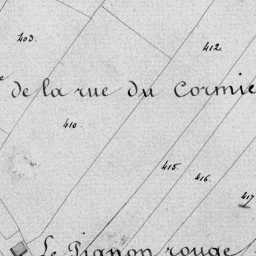 403.
412.
de la rue du Cormie
410
415.
416.
417
Le Pignon rouge